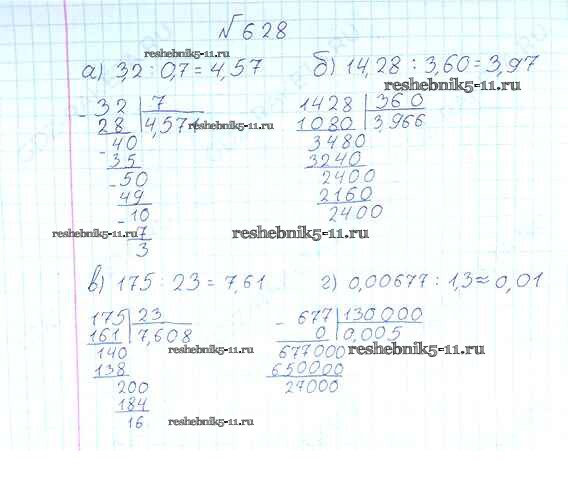 №628
reshebnik5-11.ru
а) 3,2 : 0,7 = 4,57
б) 14,28 : 3,60 = 3,97
reshebnik5-11.ru
- 32 | 7
28 | 4,571
reshebnik5-11.ru
- 40
35
- 50
49
- 10
7
3
1428 | 360
1080 | 3,966
3480
3240
2400
2160
2400
reshebnik5-11.ru
в) 175 : 23 = 7,61
г) 0,00677 : 1,3 ≈ 0,01
175 | 23
161 | 7,608
140
138
200
184
16
reshebnik5-11.ru
reshebnik5-11.ru
- 677 | 130000
0 | 0,005
677000
650000
27000
reshebnik5-11.ru